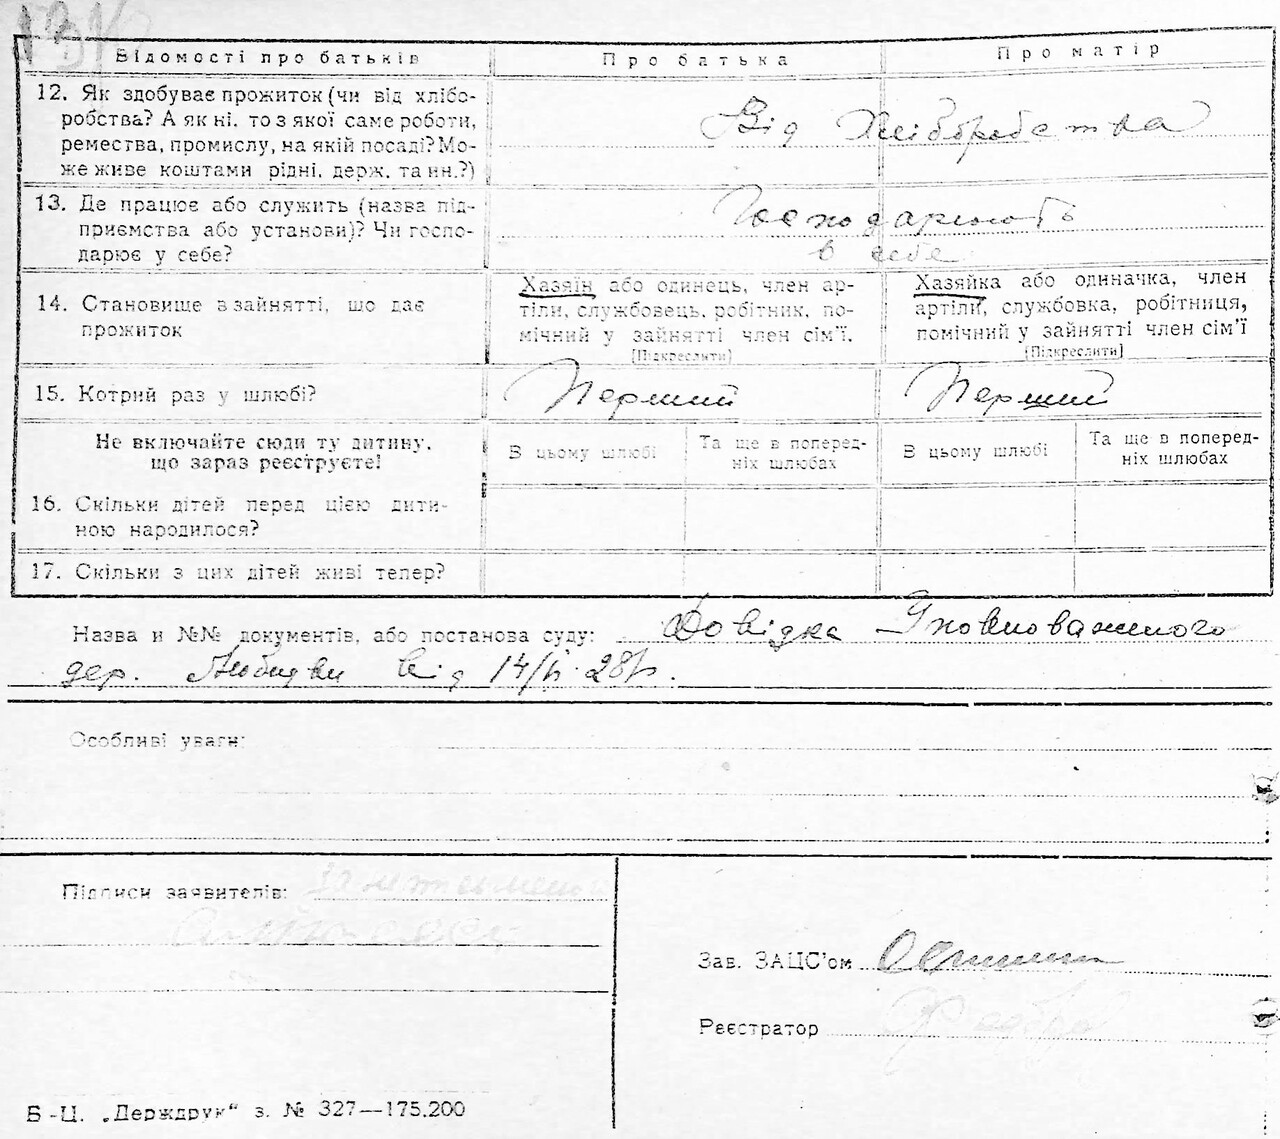 Відомості про батьків Про батька Про матір
12. Як здобуває прожиток (чи від хлібо-
робства? А як ні, то з якої саме роботи,
ремества, промислу, на якій посаді? Мо-
же живе коштами рідні, держ. та ин.?)
Від Хліборобства
13. Де працює або служить (назва під-
приємства або установи)? Чи госпо-
дарює у себе?
Господарюють
в себе
14. Становище в зайнятті, що дає
прожиток
Хазяїн або одинець, член ар-
тіли, службовець, робітник, по-
мічний у зайнятті член сім'ї.
[Підкреслити]
Хазяйка або одиначка, член
артіли, службовка, робітниця,
помічний у зайнятті член сім'ї
[Підкреслити]
15. Котрий раз у шлюбі? Перший Перший
Не включайте сюди ту дитину,
що зараз реєструєте!
В цьому шлюбі
Та ще в поперед-
ніх шлюбах
В цьому шлюбі
Та ще в поперед-
ніх шлюбах
16. Скільки дітей перед цією дити-
ною народилося?
17. Скільки з цих дітей живі тепер?
Назва и №№ документів, або постанова суду: Довідка Уповноваженого
дер. від 14/ 28р.
Особливі уваги:
Підписи заявителів:
Зав. ЗАЦС'ом
Реєстратор
Б-Ц. „Держдрук" з. № 327—175.200